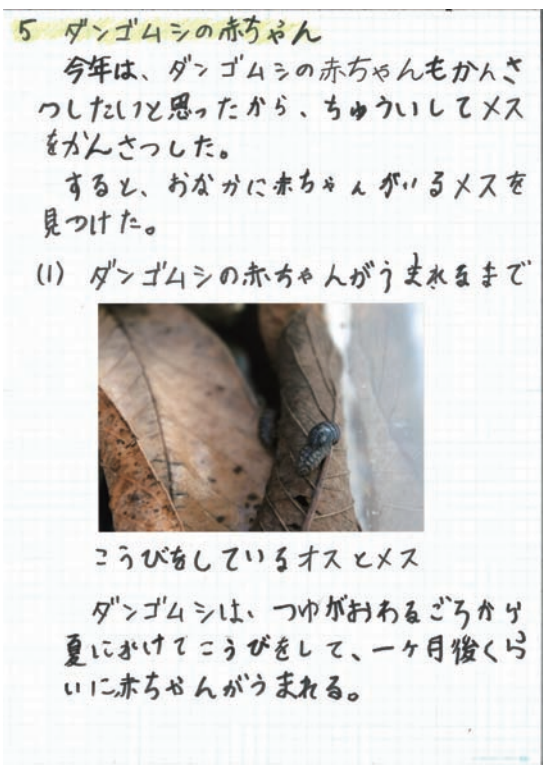 5 ダンゴムシの赤ちゃん
今年は、ダンゴムシの赤ちゃんもかんさ
つしたいと思ったから、ちゅういしてメス
をかんさつした。
すると、おなかに赤ちゃんがいるメスを
見つけた。
(1) ダンゴムシの赤ちゃんがうまれるまで
こうびをしているオスとメス
ダンゴムシは、つゆがおわるごろから
夏にかけてこうびをして、一ケ月後くら
いに赤ちゃんがうまれる。